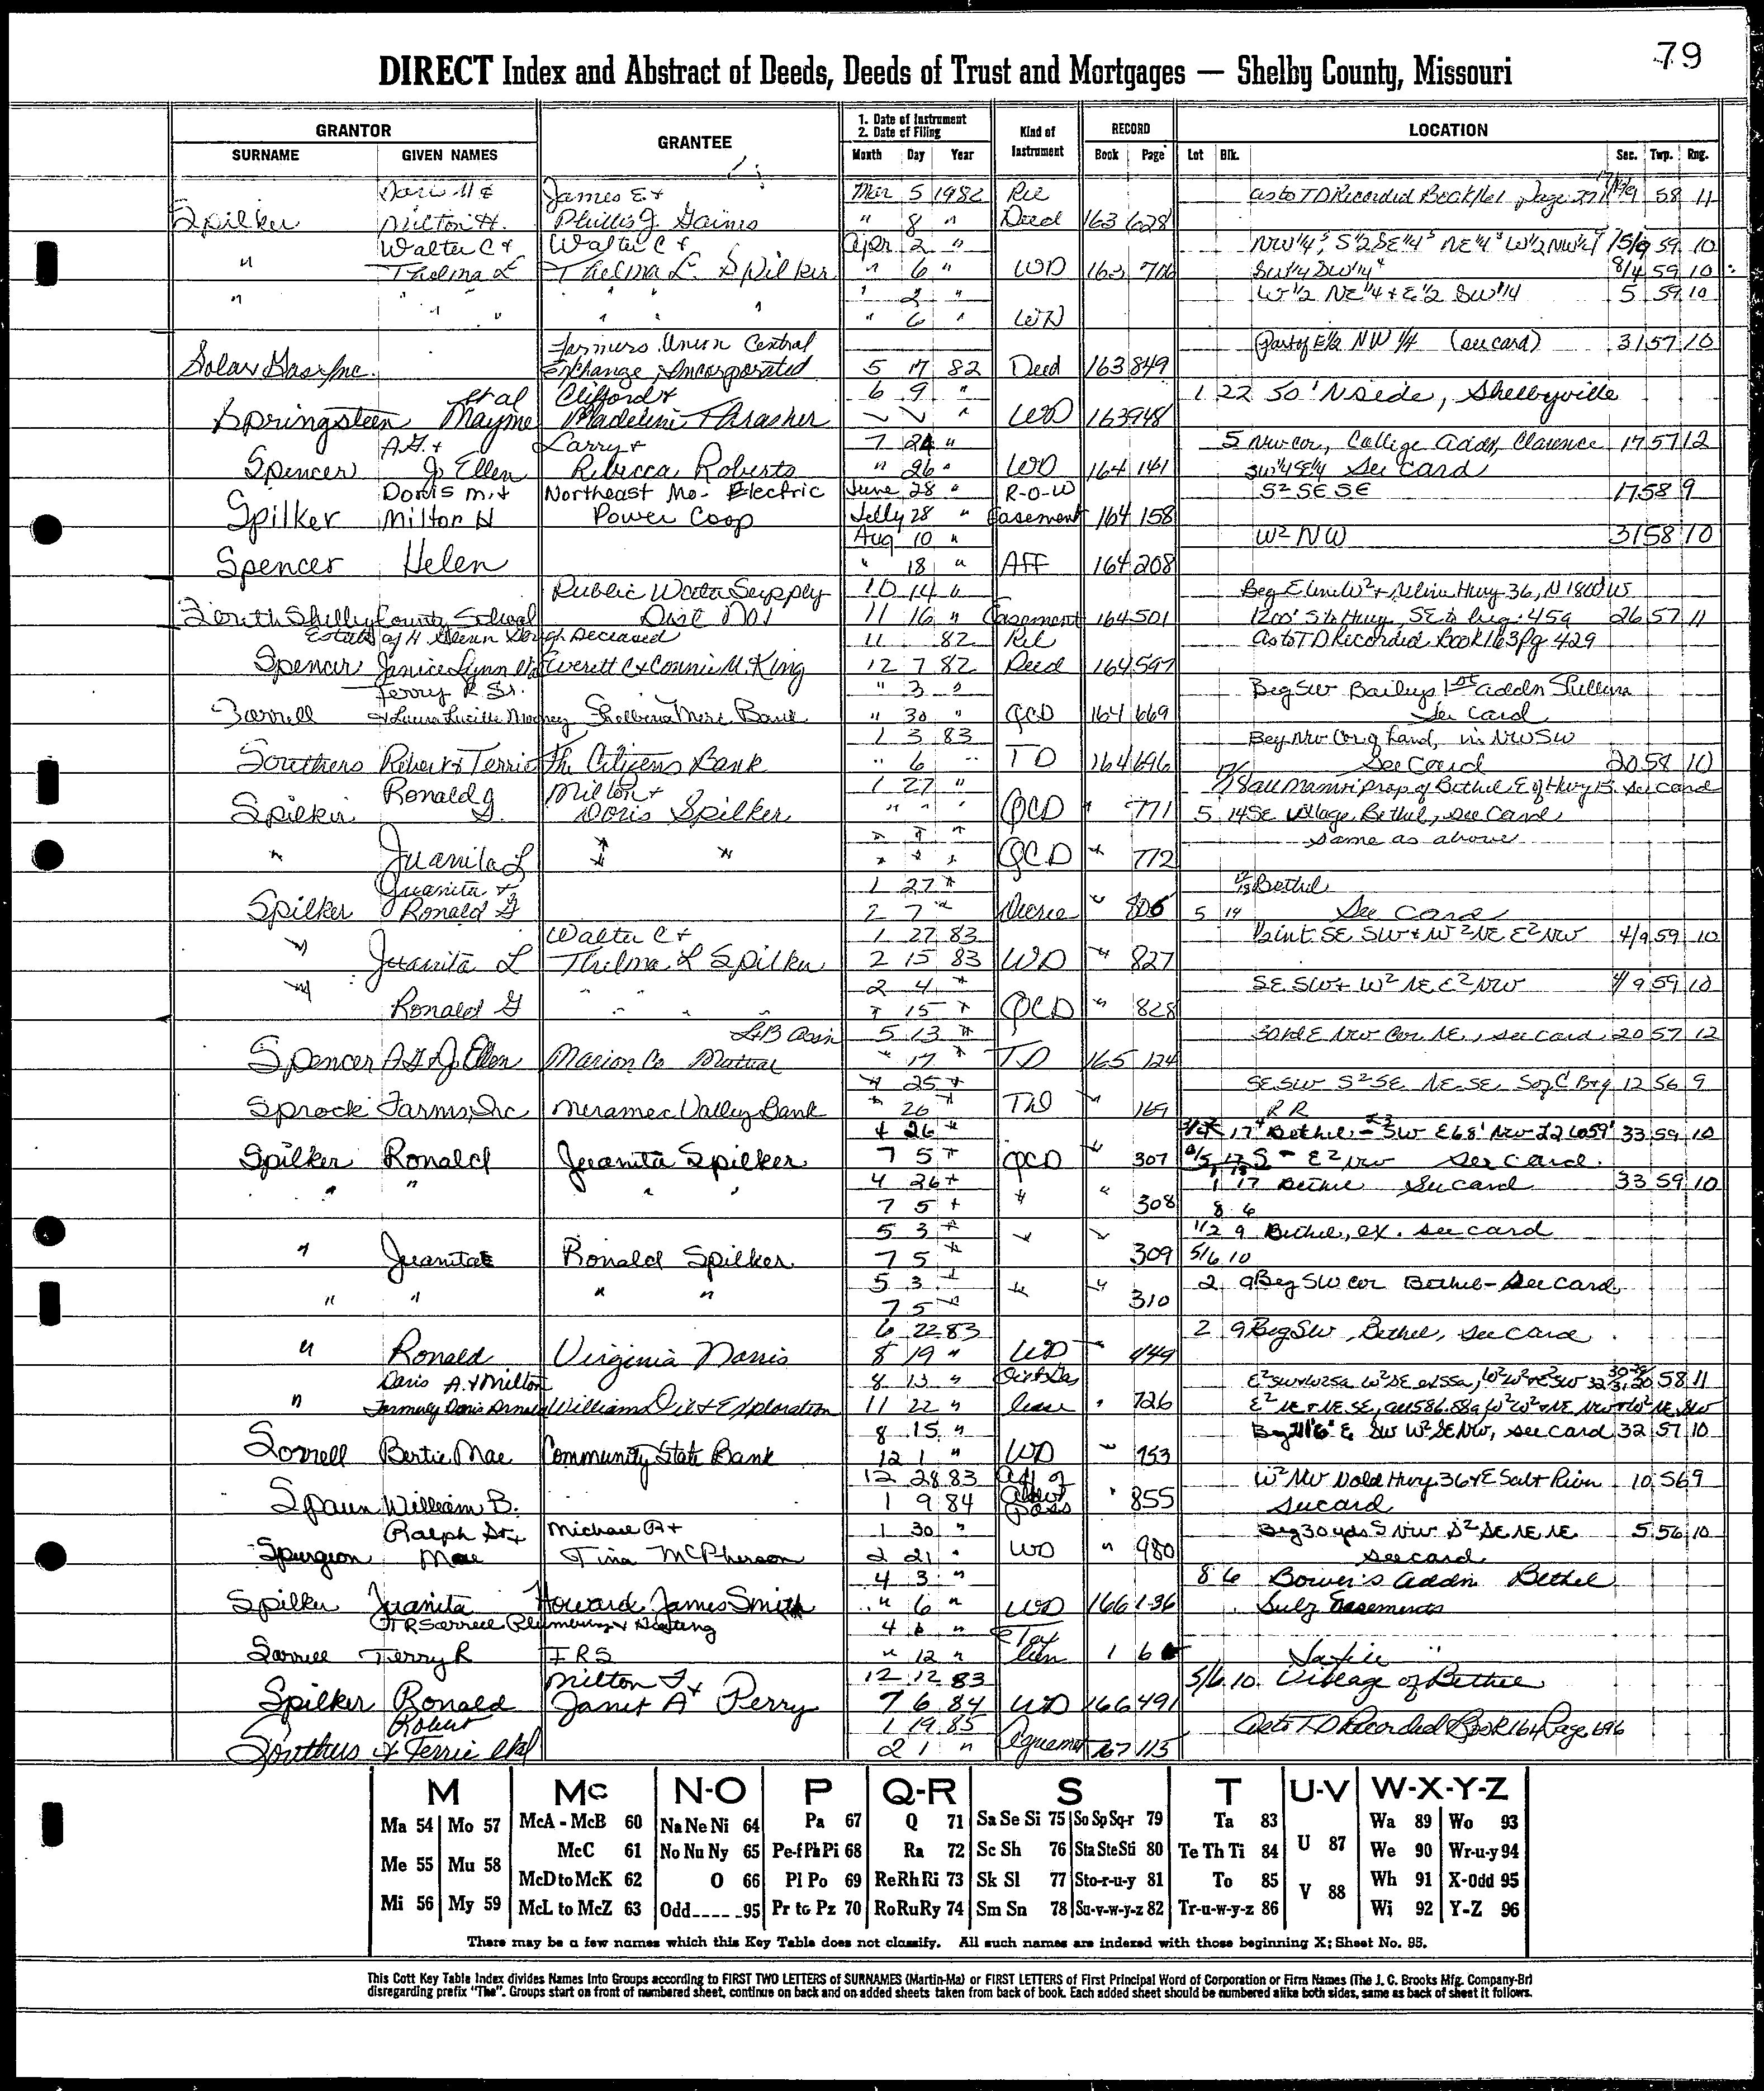 79
DIRECT Index and Abstract of Deeds, Deeds of Trust and Mortgages — Shelby County, Missouri
GRANTOR GRANTEE 1. Date of Instrument 2. Date of Filing Kind of Instrument RECORD LOCATION
SURNAME GIVEN NAMES Month Day Year Book Page Lot Blk. Sec. Twp. Rng.
James E + Mar 5 1982 Rel as to TD Recorded Book 161 Page 58 11
Spilker Milton H. Phillis J. Gaines " 8 " Deed 163 628
Walter C + Walter C + Apr 2 " 59 10
" Thelma L Thelma L. Spilker " 6 " WD 163 SW 1/4 SW 1/4 59 10
" " " " " " " 2 " W 1/2 NE 1/4 + E 1/2 SW 1/4 5 59 10
" 6 " WD
Farmers Union Central Part of E 1/2 NW 1/4 (see card) 31 57 10
Solar Gas Inc. Exchange, Incorporated 5 17 82 Deed 163 849
et al Clifford + 6 9 " 1 22 50' N side, Shelbyville
Springsteen Mayme Madeline Thrasher " WD 163 948
A.G. + Larry + 7 24 " 5 NW cor, College Addn, Clarence 17 57 12
Spencer J. Ellen Rebecca Roberts " 26 " WD 164 141 SW 1/4 SE 1/4 See card
Doris M. + Northeast Mo- Electric June 28 " R-O-W S2 SE SE 17 58 9
Spilker Milton H Power Coop July 28 " Easement 164 158
Aug 10 " W2 NW 31 58 10
Spencer Helen " 18 " AFF 164 208
Public Water Supply 10 14 " Beg E line W2 + N line Hwy 36, N 1800 W
South Shelby County School Dist No 1 11 16 " Easement 164 501 1200' S to Hwy, SE to beg. 45a 26 57 11
Estate of H Glenn Deceased 11 82 Rel as to TD Recorded Book 163 pg 429
Spencer Janice Lynn Everett C + Connie M. King 12 7 82 Deed 164 597
Terry R Sr. " 3 " Beg SW Baileys 1st addn Shelbina
Sorrell + Laura Lucille Shelbina Merc Bank " 30 " QCD 164 669 See card
1 3 83 Beg NW Cor of Land, in NW SW
Southers Robert + Terrie The Citizens Bank " 6 " TD 164 696 See Card 20 58 10
Ronald G Milton + 1 27 " E of Hwy 15 see card
Spilker G. Doris Spilker " " " QCD " 771 5 14 SE Village, Bethel, see Card
same as above
" Juanita L " " QCD " 772
Juanita + 1 27 " Bethel
Spilker Ronald G 2 7 " Decree " 806 5 14 See Card
Walter C + 1 27 83 1/2 int. SE SW + W2 NE E2 NW 4/9 59 10
" Juanita L Thelma L Spilker 2 15 83 WD " 827
2 4 " SE SW + W2 NE E2 NW 4/9 59 10
" Ronald G " " " " 15 " QCD " 828
5 13 " NW Cor NE, see card 20 57 12
Spencer A G + J. Ellen Marion Co Mutual " 17 " TD 165 124
" 25 " SE SW S2 SE NE SE, So of C B + Q 12 56 9
Sprock Farms, Inc Meramec Valley Bank " 26 " " 169 R R
4 26 " 17 Bethel 33 59 10
Spilker Ronald Juanita Spilker 7 5 " QCD " 307 E2 NW See card.
" " " " 4 26 " 1 17 Bethel See card 33 59 10
7 5 " " " 308 8 6
5 3 " 1/2 9 Bethel, ex. see card
" Juanita Ronald Spilker 7 5 " " 309 5/6 10
5 3 " 2 9 Beg SW cor Bethel - See card
" " " " 7 5 " " 310
6 22 83 2 9 Beg SW, Bethel, see card
" Ronald Virginia Norris 8 19 " WD " 449
Doris A. + Milton 8 13 " 58 11
" Formerly Doris Arnold Williams Oil + Exploration 11 22 " lease " 726
8 15 " SW W2 SE NW, see card 32 57 10
Sorrell Bertie Mae Community State Bank 12 1 " WD " 953
12 28 83 Aff of W2 NW N old Hwy 36 + E Salt River 10 56 9
Spaun William B. 1 9 84 Poss " 855 see card
Ralph Sr + Michael R + 1 30 " Beg 30 yds S NW S2 SE NE NE 5 56 10
Spurgeon Mae Tina McPherson 2 21 " WD " 980 see card
4 3 " 8 6 Bower's Addn Bethel
Spilker Juanita Howard James Smith " 6 " WD 166 136 Subj Easements
T R Sorrell Plumbing + Heating 4 6 " Tax
Sorrell Terry R I R S " 12 " lien 1 6
Milton F + 12 12 83 5/6 10 Village of Bethel
Spilker Ronald Janet A Perry 7 6 84 WD 166 491
Robert 1 19 85 as to TD Recorded Book 164 Page 696
Southers + Terrie et al 2 1 " Agreement 167 115
M Mc N-O P Q-R S T U-V W-X-Y-Z
Ma 54 Mo 57 McA - McB 60 Na Ne Ni 64 Pa 67 Q 71 Sa Se Si 75 So Sp Sq-r 79 Ta 83 Wa 89 Wo 93
McC 61 No Nu Ny 65 Pe-f Ph Pi 68 Ra 72 Sc Sh 76 Sta Ste Sti 80 Te Th Ti 84 U 87 We 90 Wr-u-y 94
Me 55 Mu 58 McD to McK 62 O 66 Pl Po 69 Re Rh Ri 73 Sk Sl 77 Sto-r-u-y 81 To 85 Wh 91 X-Odd 95
Mi 56 My 59 McL to McZ 63 Odd_____95 Pr to Pz 70 Ro Ru Ry 74 Sm Sn 78 Su-v-w-y-z 82 Tr-u-w-y-z 86 V 88 Wi 92 Y-Z 96
There may be a few names which this Key Table does not classify. All such names are indexed with those beginning X; Sheet No. 95.
This Cott Key Table Index divides Names Into Groups according to FIRST TWO LETTERS of SURNAMES (Martin-Ma) or FIRST LETTERS of First Principal Word of Corporation or Firm Names (The J. C. Brooks Mfg. Company-Br)
disregarding prefix "The". Groups start on front of numbered sheet, continue on back and on added sheets taken from back of book. Each added sheet should be numbered alike both sides, same as back of sheet it follows.